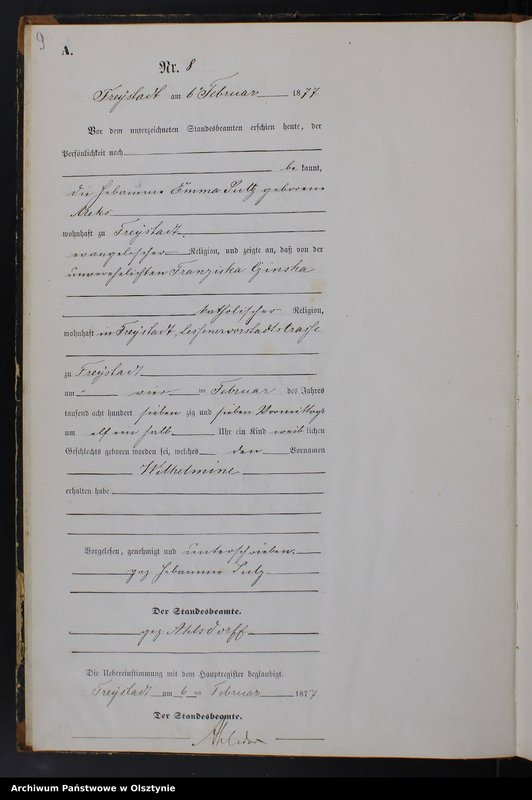 9
A.
Nr. 8
Freystadt am 6 Februar 1877
Vor dem unterzeichneten Standesbeamten erschien heute, der
Persönlichkeit nach
be kannt,
die Hebamme Emma Sulz geborene
wohnhaft zu Freystadt.
evangelischer Religion, und zeigte an, daß von der
unverehelichten Franziska Ginska
katholischer Religion,
wohnhaft in Freystadt, Lessenervorstadtstrasse
zu Freystadt
am vier ten Februar des Jahres
tausend acht hundert sieben zig und sieben Vormittags
um elf ein halb Uhr ein Kind weib lichen
Geschlechts geboren worden sei, welches den Vornamen
Wilhelmine
erhalten habe
Vorgelesen, genehmigt und unterschrieben.
gez Hebamme Sulz
Der Standesbeamte.
gez Ahlsdorff
Die Uebereinstimmung mit dem Hauptregister beglaubigt.
Freystadt am 6 ten Februar 1877
Der Standesbeamte.
Archiwum Państwowe w Olsztynie